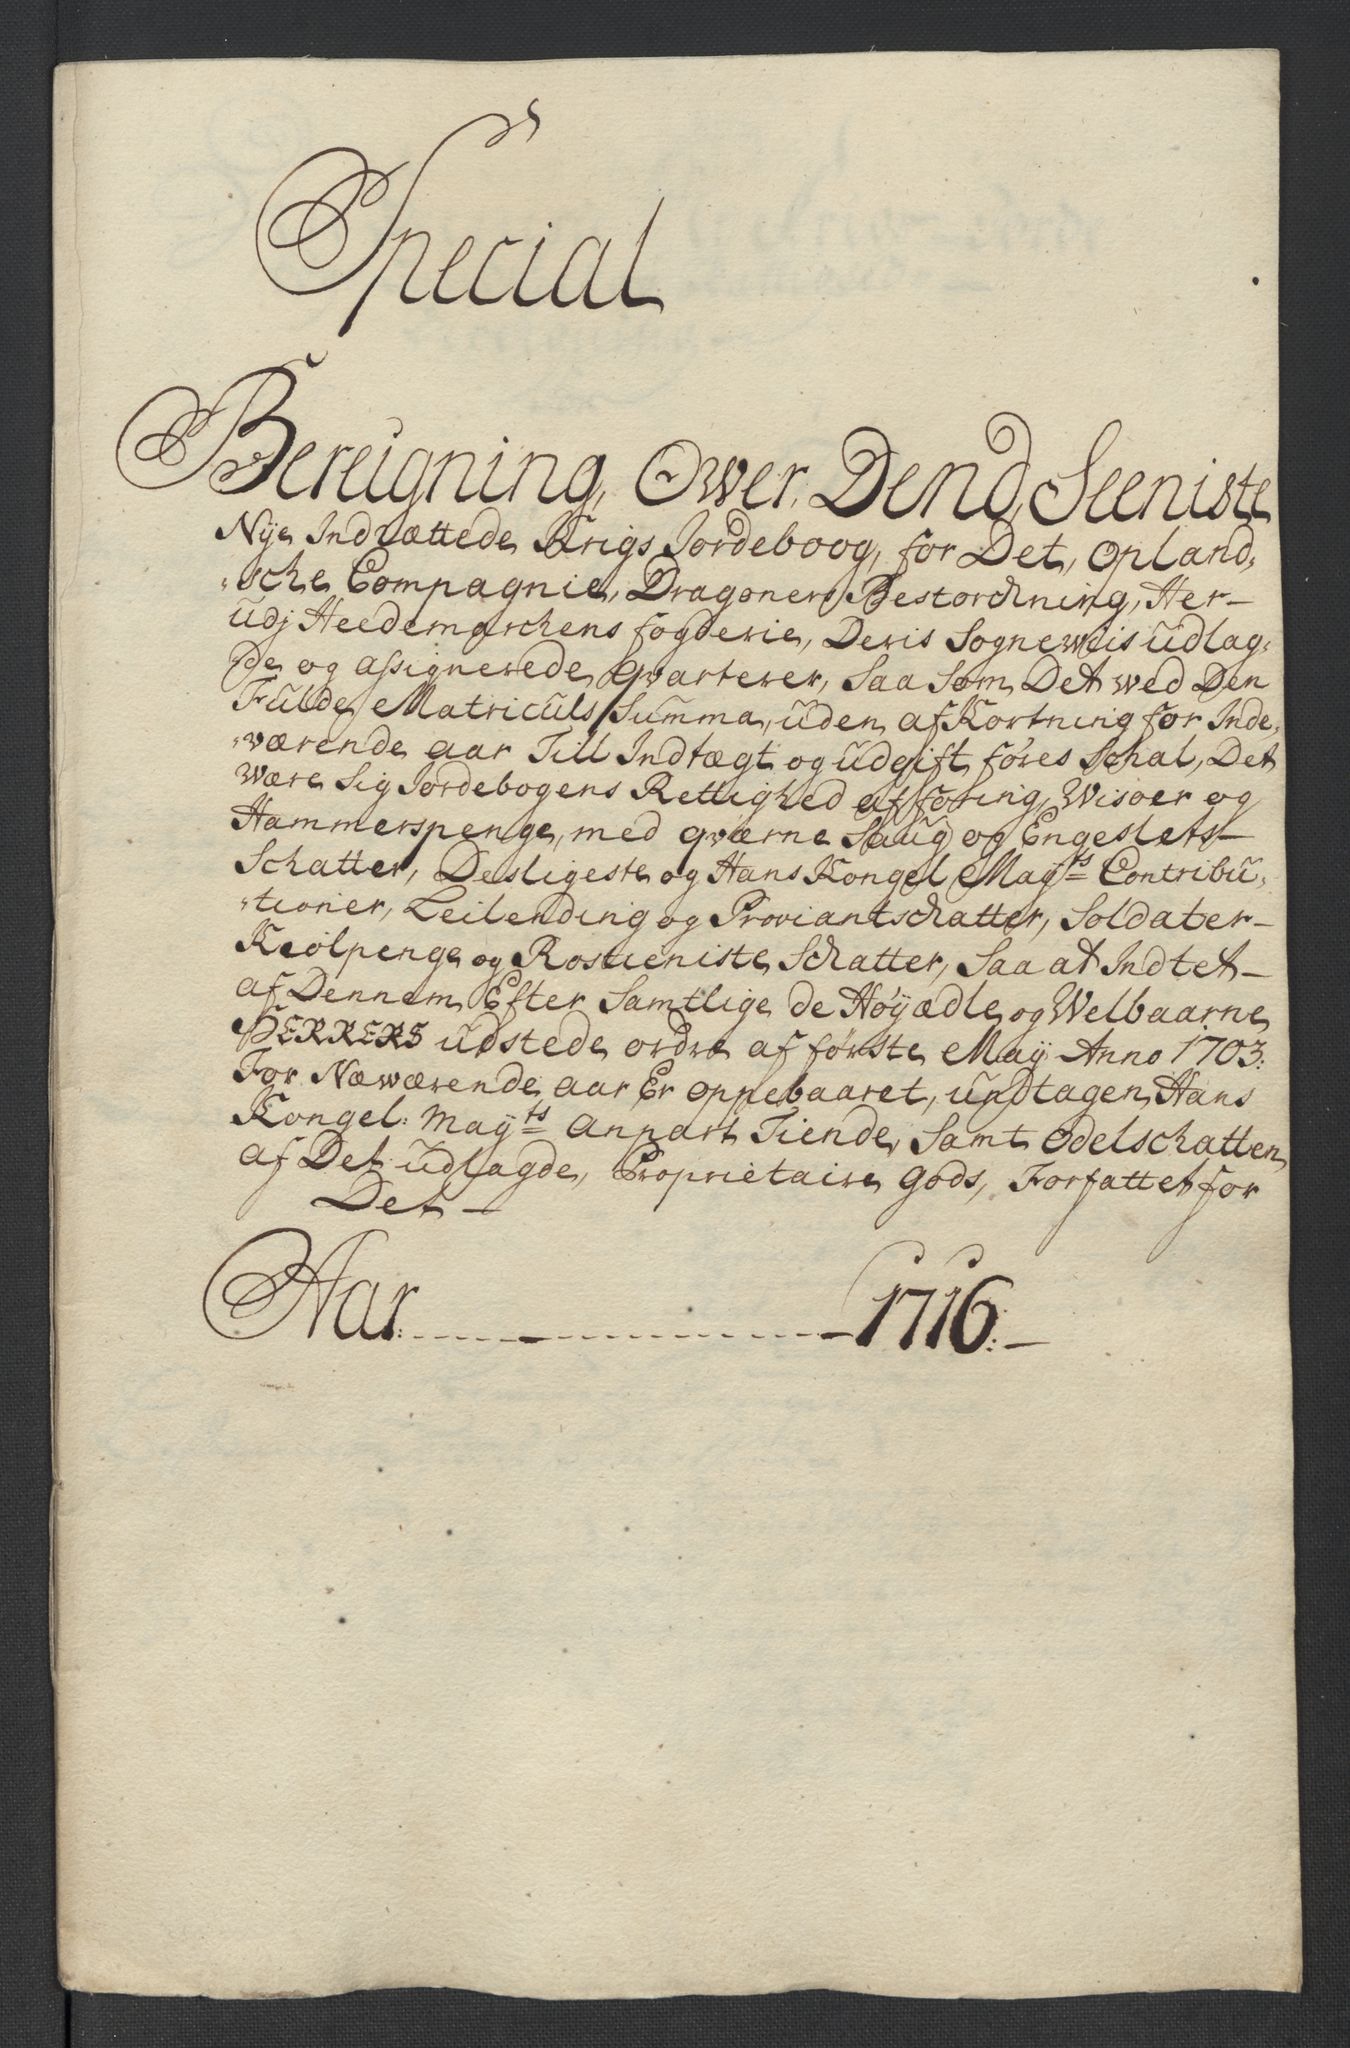 Special
Bereigning, Ower, Dend Seeniste
Nye Indrættede Krigs Jordeboog, for Det, opland,
"sche Compagnie, Dragoner, Bestordning, Her-
udj Heedemarchens fogderie, Deris Sogneweis udlag,
de og assignerede qvarterer, Saa Som Det wed Den
Fulde Matriculs Summa, uden afKortning for Inde,
"værende aar Till Indtægt og udgift føres Schal, Det
Være Sig Jordebogens Rettighed afføring, Wisøer og
Hammerspenge, med qværne Saug og Engeslets-
Schatter, Desligeste og Hans Kongel Mayts Contribu,
"tioner, Leilending og Proviantschatter, Soldater-
Kiolpenge og Rostieniste Schatter, Saa at Indtet-
af Dennem Efter Samtlige de Høyædle og Welbaarne
HERRERS udstede ordre af første May Anno 1703:
For Næwærende aar Er oppebaaret, undtagen Hans
Kongel: Mayts anpart Tiende, Samt odelschatten
af Det udlagde, Proprietaire gods, Forfattet for
Det -
Aar: - - - - - - - - 1716:-